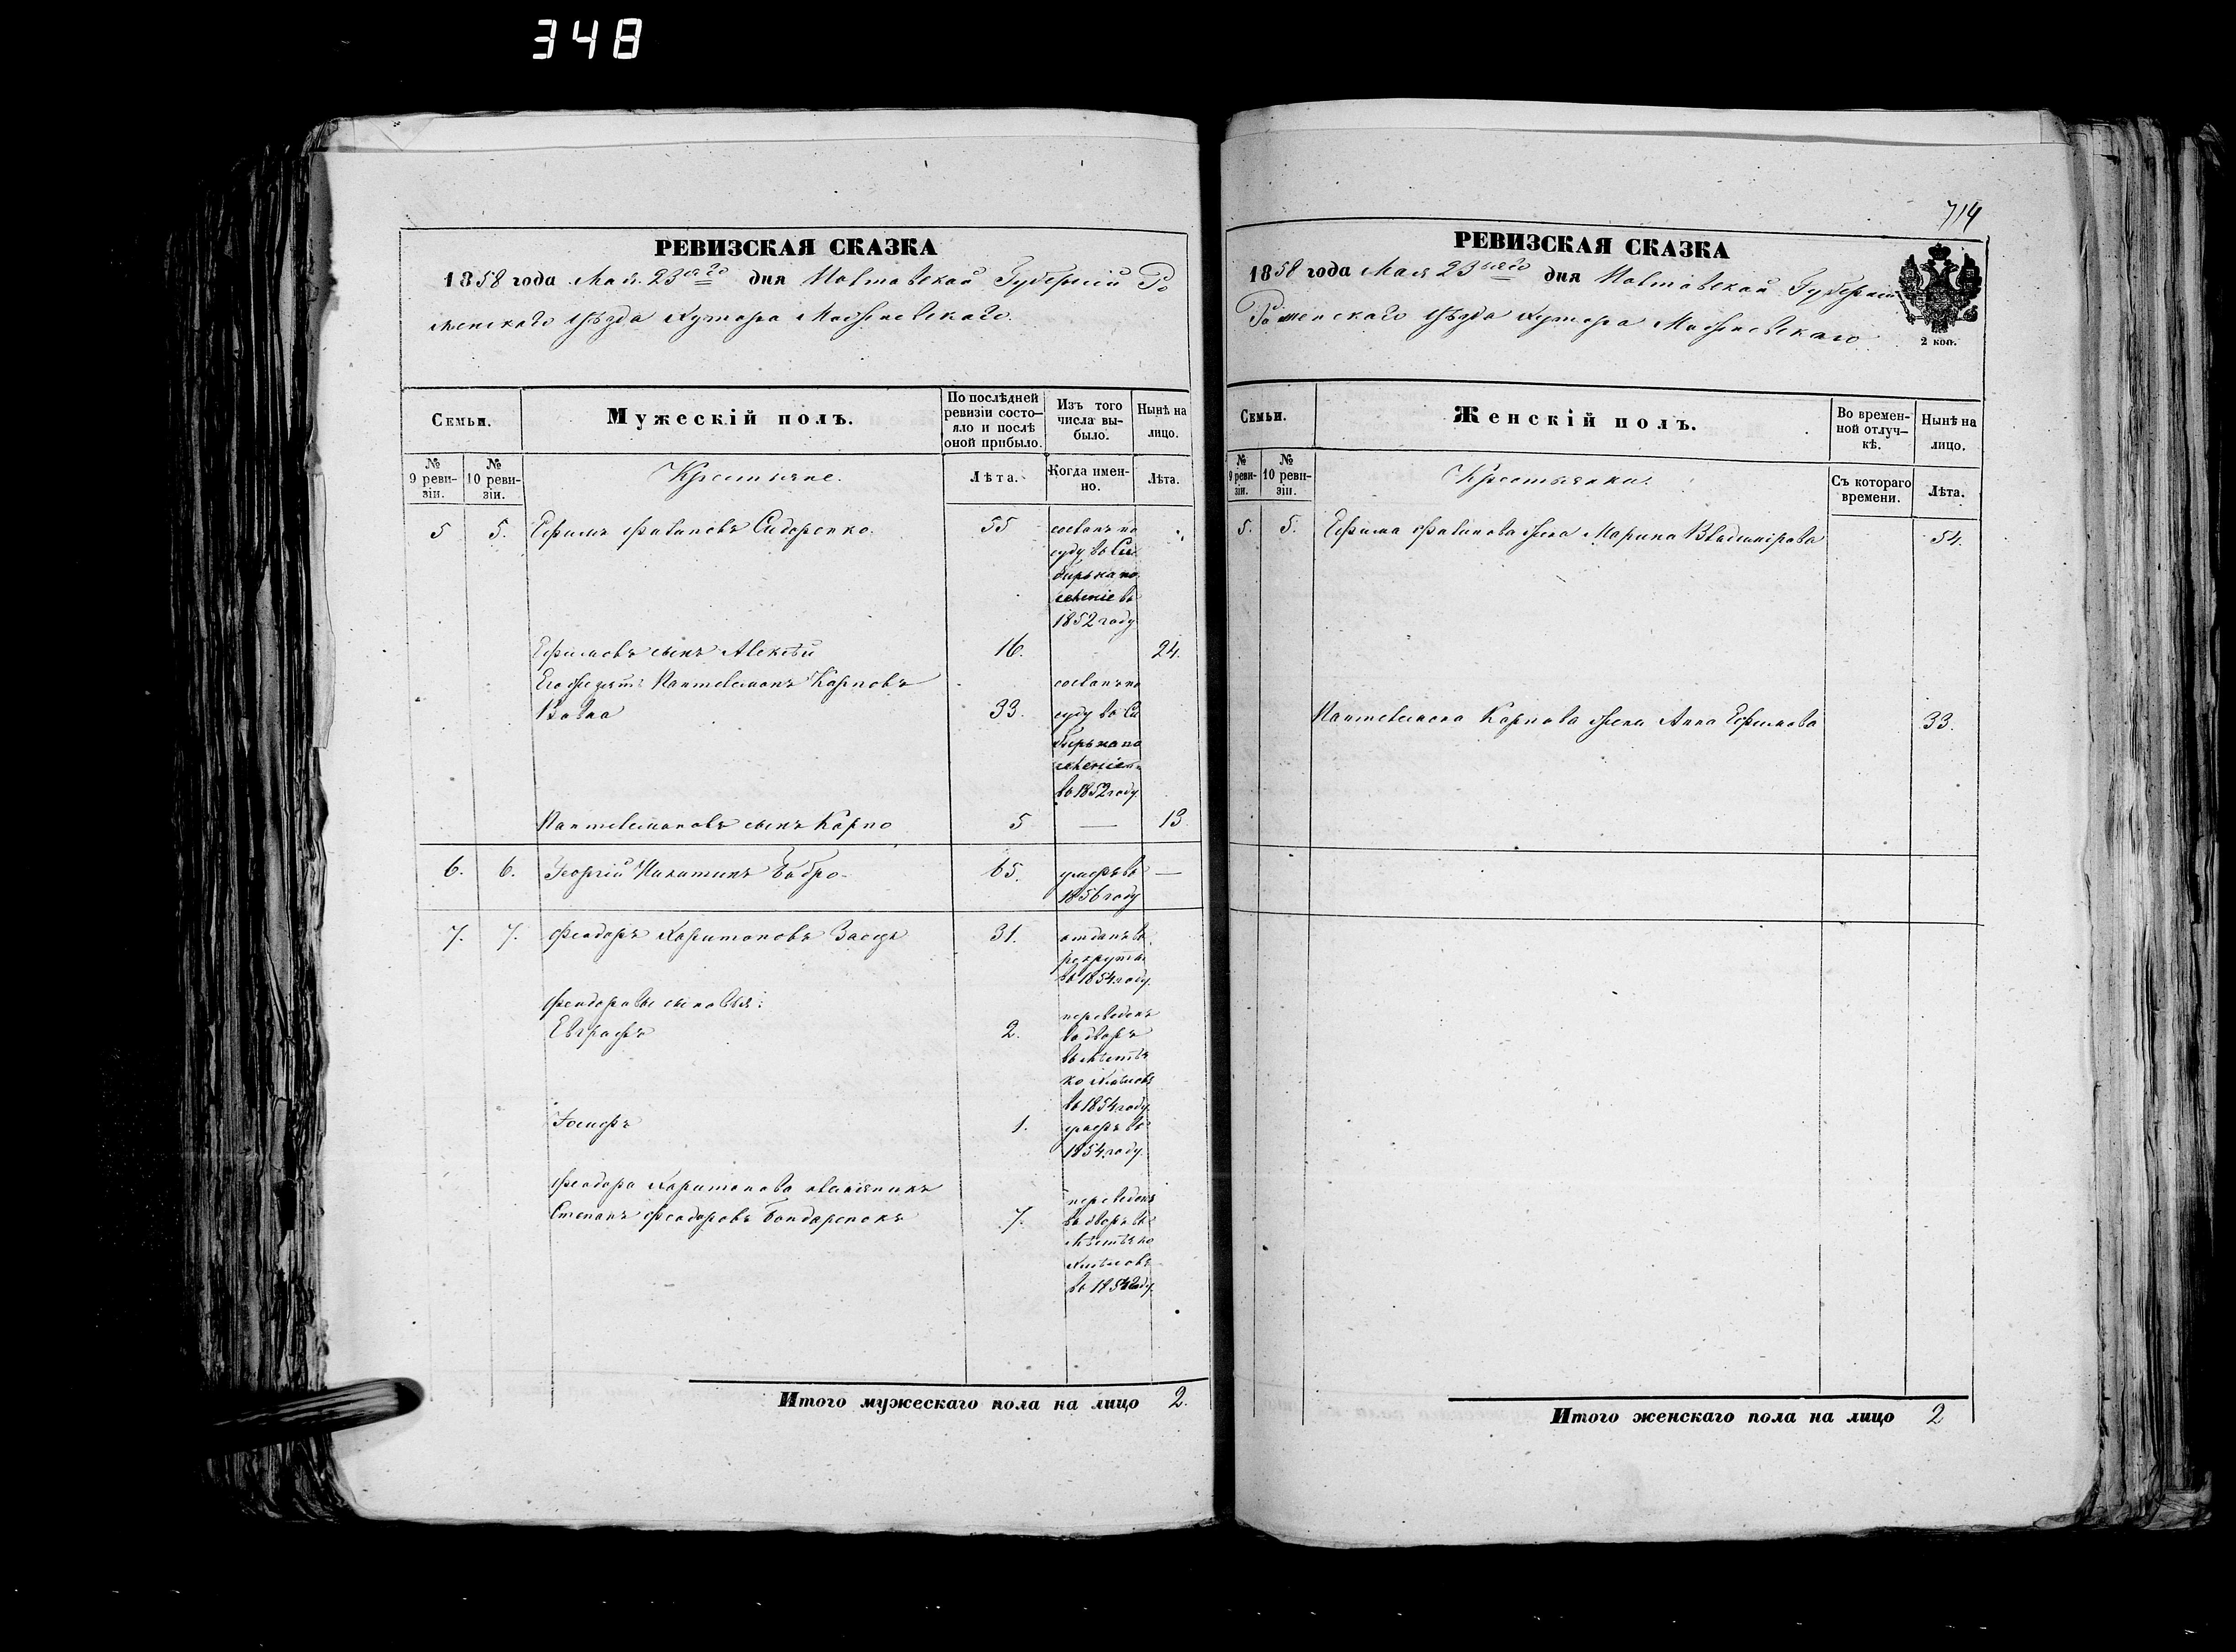 348
РЕВИЗСКАЯ СКАЗКА
1858 года Мая 23го дня Полтавской Губернiи Ро
менскаго уѣзда хутора
Семьи.
Мужескiй полъ.
По послѣдней ревизiи состо-яло и послѣ оной прибыло.
Изъ того числа вы-было.
Нынѣ на лицо.
№ 9 реви-зiи.
№ 10 реви-зiи.
Крестьяне.
Лѣта.
Когда имен-но.
Лѣта.
5 5. Ефимъ Сидоренко. 55 сосланъ по
суду въ Си
бирь на по
селенiе въ
1852 году
Ефимовъ сынъ Алексѣй 16. 24.
Его же зять Пантелеймонъ Карповъ сосланъ по
Вовна 33. суду въ Си
бирь на по
селенiе
въ 1852 году.
Пантелимоновъ сынъ Карпо 5 — 13.
6. 6. Георгiй Никитинъ Бобро 65. умеръ въ —
1856 году
7. 7. Феодоръ Харитоновъ Заецъ 31. отданъ въ
рекруты
въ 1854 году.
Феодоровы сыновья: переведенъ
Евграфъ 2. въ дворъ
въ мѣстѣч
ко
въ 1854 году.
Iосифъ 1. умеръ въ
1854 году.
Феодора Харитонова племянникъ переведенъ
Степанъ Феодоровъ Бондаренокъ 7. въ дворъ въ
мѣстѣчко
въ 1854 году.
Итого мужескаго пола на лицо 2.
714
РЕВИЗСКАЯ СКАЗКА
1858 года Мая 23го дня Полтавской Губернiи
Роменскаго уѣзда хутора
2 коп.
Семьи.
Женскiй полъ.
Во времен-ной отлуч-кѣ.
Нынѣ на лицо.
№ 9 реви-зiи.
№ 10 реви-зiи.
Крестьянки.
Съ котораго времени.
Лѣта.
5. 5. Ефима жена Марина Владимiрова 54.
Пантелимона Карпова жена Анна Ефимова 33.
Итого женскаго пола на лицо 2